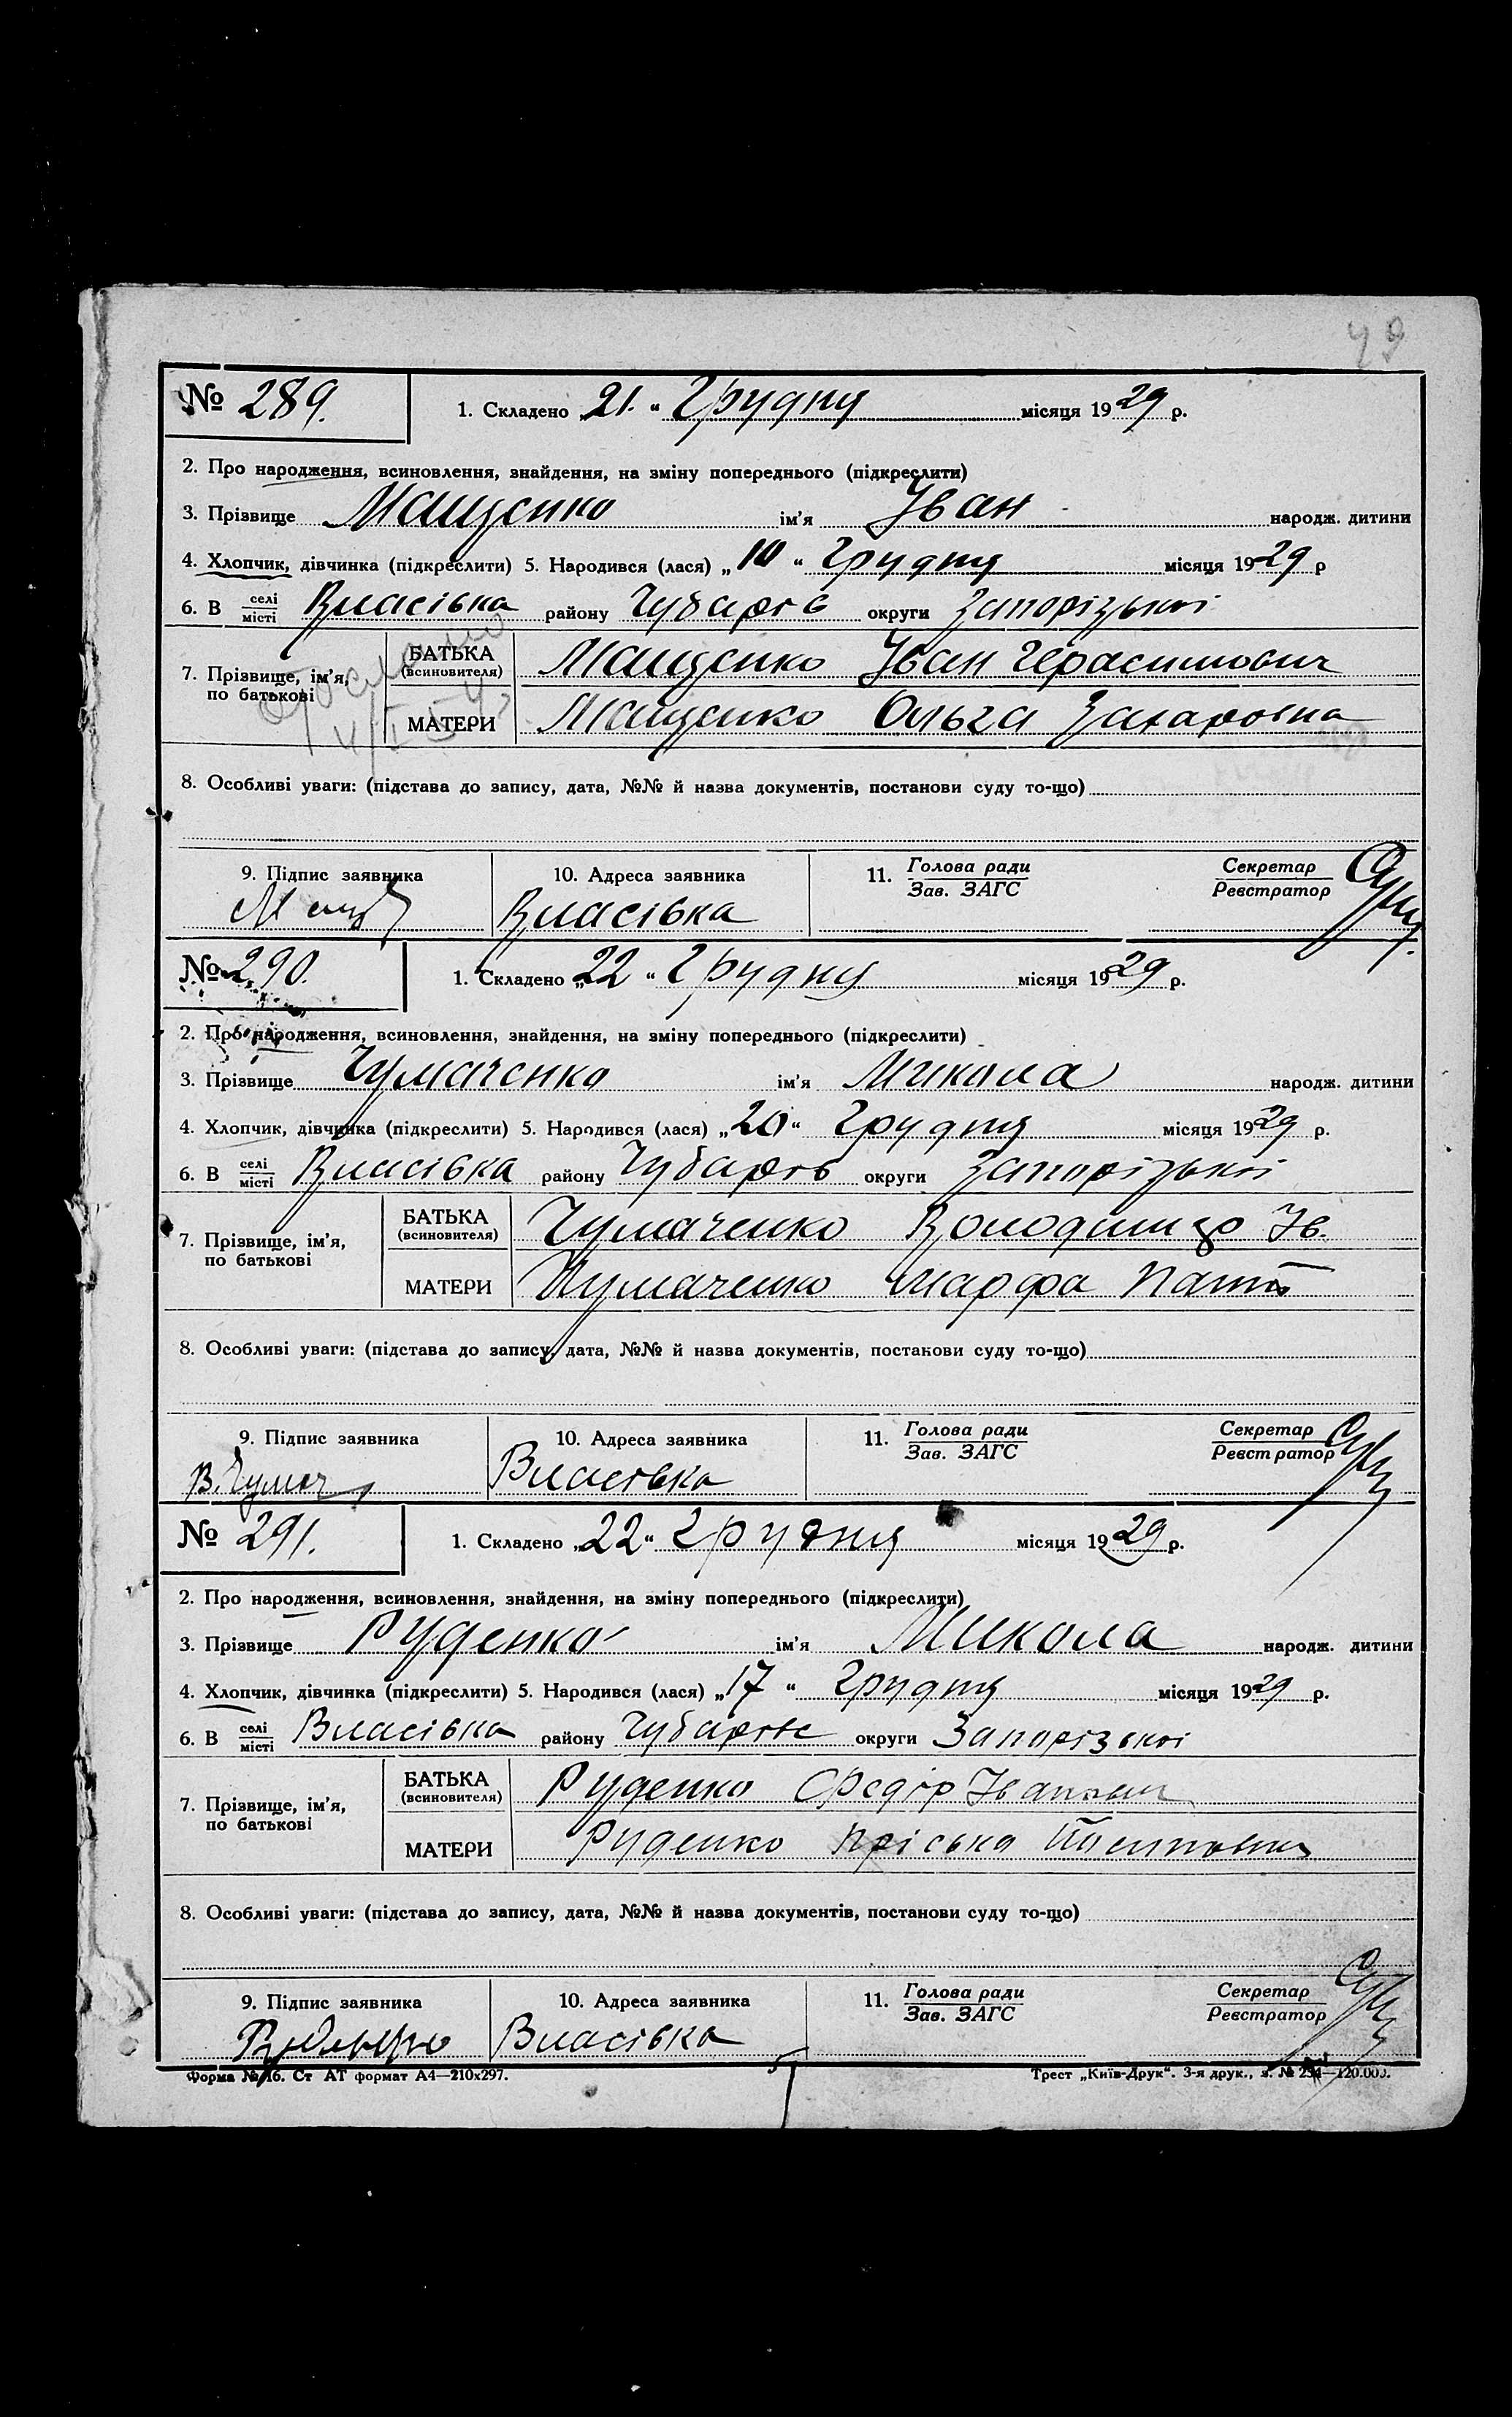 49
№ 289. 1. Складено „21.“ Грудня місяця 1929 р.
2. Про народження, всиновлення, знайдення, на зміну попереднього (підкреслити)
3. Прізвище Мащенко ім'я Іван народж. дитини
4. Хлопчик, дівчинка (підкреслити) 5. Народився (лася) „10“ Грудня місяця 1929 р
6. В селі місті Власівка району Чубарів округи Запорізької
7. Прізвище, ім'я, по батькові
БАТЬКА (всиновителя) Мащенко Іван Герасимович
МАТЕРИ Мащенко Ольга Захаровна
8. Особливі уваги: (підстава до запису, дата, №№ й назва документів, постанови суду то-що)
9. Підпис заявника 10. Адреса заявника 11. Голова ради Зав. ЗАГС Секретар Реєстратор
Власівка
№ 290. 1. Складено „22“ Грудня місяця 1929 р.
2. Про народження, всиновлення, знайдення, на зміну попереднього (підкреслити)
3. Прізвище Чумаченко ім'я Микола народж. дитини
4. Хлопчик, дівчинка (підкреслити) 5. Народився (лася) „20“ Грудня місяця 1929 р.
6. В селі місті Власівка району Чубарів округи Запорізької
7. Прізвище, ім'я, по батькові
БАТЬКА (всиновителя) Чумаченко Володимир Ів.
МАТЕРИ Чумаченко Марфа
8. Особливі уваги: (підстава до запису, дата, №№ й назва документів, постанови суду то-що)
9. Підпис заявника 10. Адреса заявника 11. Голова ради Зав. ЗАГС Секретар Реєстратор
В. Чумач Власівка
№ 291. 1. Складено „22“ Грудня місяця 1929 р.
2. Про народження, всиновлення, знайдення, на зміну попереднього (підкреслити)
3. Прізвище Руденко ім'я Микола народж. дитини
4. Хлопчик, дівчинка (підкреслити) 5. Народився (лася) „17“ Грудня місяця 1929 р.
6. В селі місті Власівка району Чубарівс округи Запорізької
7. Прізвище, ім'я, по батькові
БАТЬКА (всиновителя) Руденко Федір Іванович
МАТЕРИ Руденко Пріська
8. Особливі уваги: (підстава до запису, дата, №№ й назва документів, постанови суду то-що)
9. Підпис заявника 10. Адреса заявника 11. Голова ради Зав. ЗАГС Секретар Реєстратор
Власівка
Форма № 16. Ст АТ формат А4—210х297. Трест „Київ-Друк“. 3-я друк., з. № —120.000.